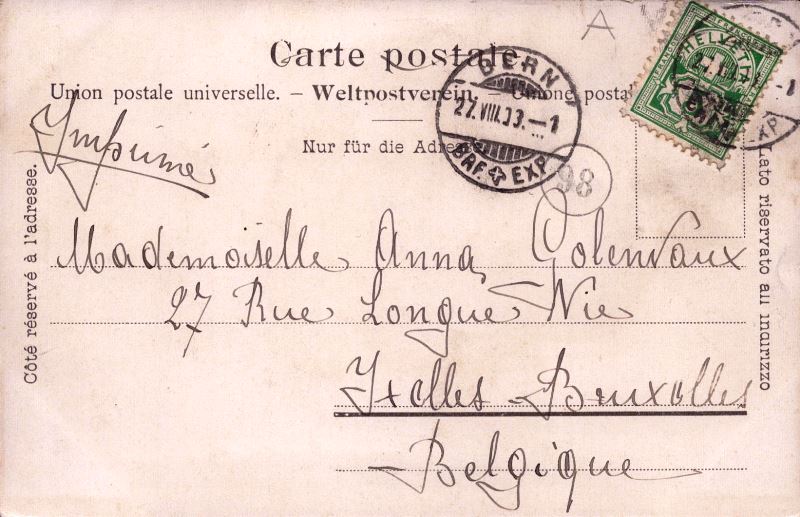 A
Carte postale
Union postale universelle. – Weltpostverein. – Unione postal
Nur für die Adresse
Imprimé
BERN
27.VIII.03.–1
BRF. EXP.
98
HELVETIA
–1
EXP.
Côté réservé à l'adresse.
Lato riservato all indirizzo
Mademoiselle Anna Golenvaux
27 Rue Longue Vie
Ixelles Bruxelles
Belgique